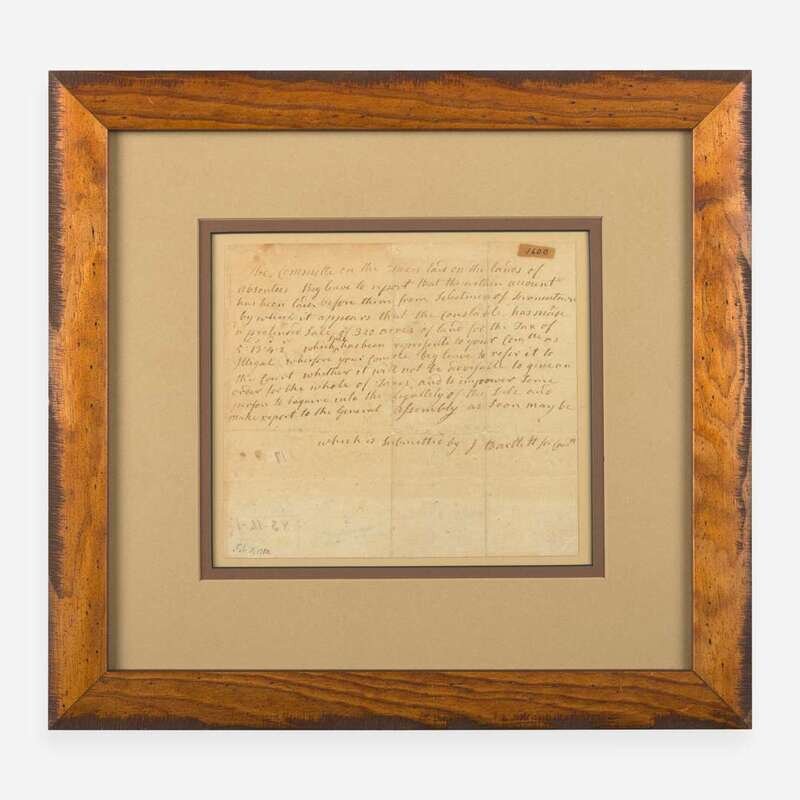 1600
The Committe on the Taxes laid on the lands of
absentees Beg leave to report that the within account
has been laid before them from Selectmen of
by which it appears that the Constable has made
a pretended Sale of 320 acres of land for the Tax of
which has been represented to your Comtee as
Illegal, wherefore your Comtee beg leave to refer it to
the Court whether it will not be adviseable to give an
order for the whole of Taxes, and to impower Some
person to inquire into the Legallety of the Sale and
make report to the General Assembly as Soon may be
which is Submitted by J Bartlett for Comtee